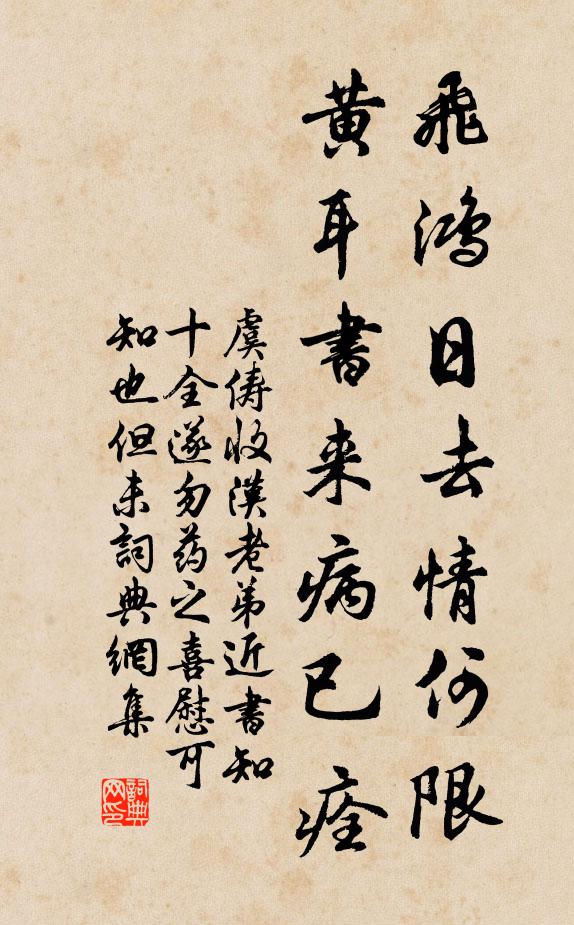 飛鴻日去情何限
黃耳書來病已痊
虞儔收漢老弟近書知
十全遂勿药之喜慰可
知也但未詞典網集
詞典
网印